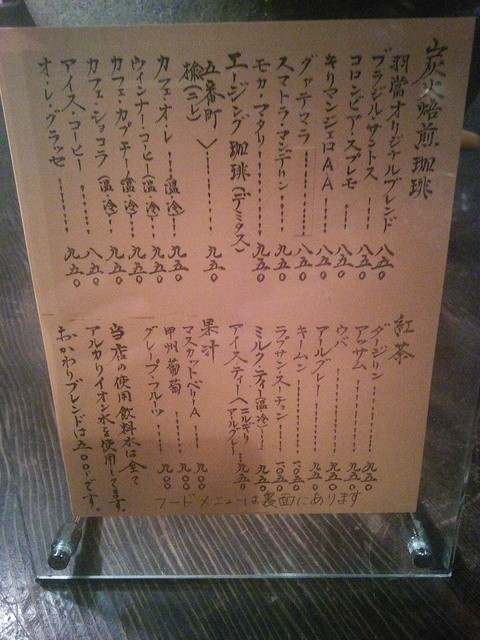 炭火焙煎珈琲
羽當オリジナルブレンド 八五〇
ブラジル・サントス 八五〇
コロンビア・スプレモ 八五〇
キリマンジェロAA 八五〇
グァテマラ 八五〇
スマトラ・マンデリン 九五〇
モカ・マタリ 九五〇
エージング珈琲(デミタス)
五番町
楡(ニレ) 九五〇
カフェ・オ・レ(温冷) 九五〇
ウィンナー・コーヒー(温・冷) 九五〇
カフェ・カプチーノ(温・冷) 九五〇
カフェ・ショコラ(温・冷) 九五〇
アイス・コーヒー 八五〇
オ・レ・グラッセ 九五〇
紅茶
ダージリン 九五〇
アッサム 九五〇
ウバ 九五〇
アールグレー 九五〇
キームン 一〇五〇
ラプサン・スーチョン 一〇五〇
ミルク・ティー(温冷) 九五〇
アイスティー(ニルギリ アールグレー 九五〇
果汁
マスカットベリーA 九〇〇
甲州葡萄 九〇〇
グレープ・フルーツ 九〇〇
当店の使用飲料水は全て
アルカリイオン水を使用してます。
おかわりブレンドは五〇〇です。
フードメニューは裏面にあります